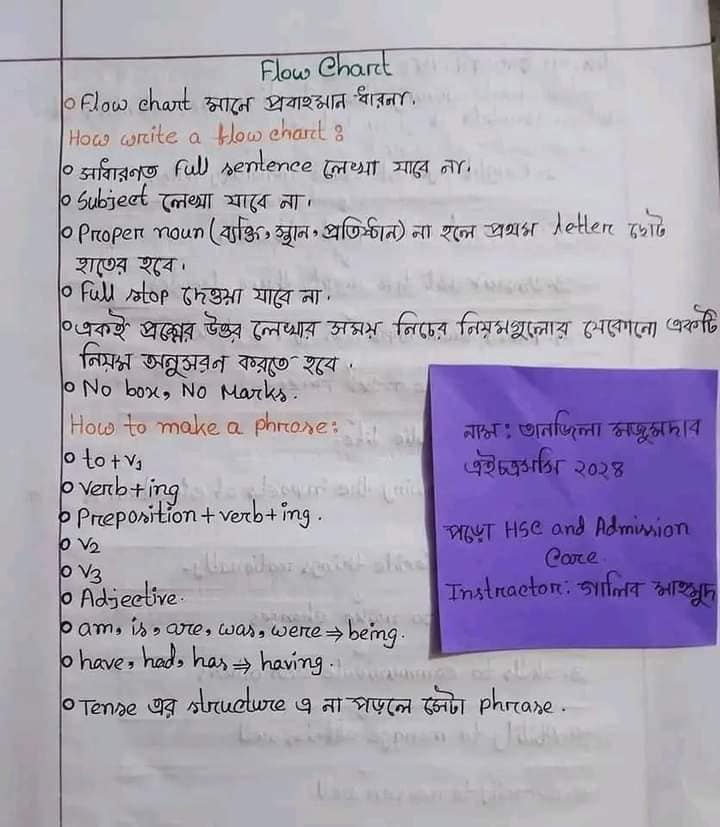 Flow Chart
o Flow chart মানে প্রবাহমান ধারনা.
How write a flow chart :
o সাধারনত full sentence লেখা যাবে না.
o Subject লেখা যাবে না.
o Proper noun (ব্যক্তি, স্থান, প্রতিষ্ঠান) না হলে প্রথম letter ছোট
হাতের হবে.
o Full stop দেওয়া যাবে না.
o একই প্রশ্নের উত্তর লেখার সময় নিচের নিয়মগুলোর যেকোনো একটি
নিয়ম অনুসরন করতে হবে.
o No box, No Marks.
How to make a phrase:
o to + v₁
o verb + ing
o Preposition + verb + ing.
o V₂
o V₃
o Adjective.
o am, is, are, was, were ⇒ being.
o have, had, has ⇒ having.
o Tense এর structure এ না পড়লে সেটা phrase.
নাম : তানজিলা মজুমদার
এইচএসসি ২০২৪
পড়ো HSC and Admission
Care.
Instructor: গালিব মাহমুদ